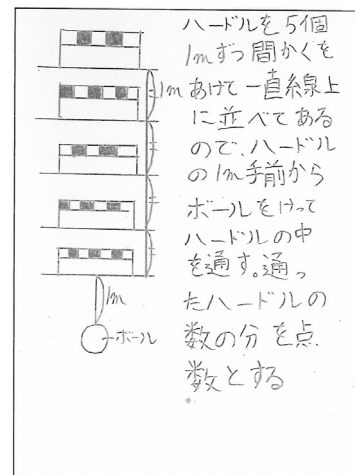 ハードルを5個
1mずつ間かくを
1m
あけて一直線上
に並べてある
ので、ハードル
の1m手前から
ボールをけって
ハードルの中
を通す。通っ
1m
たハードルの
ボール
数の分を点
数とする